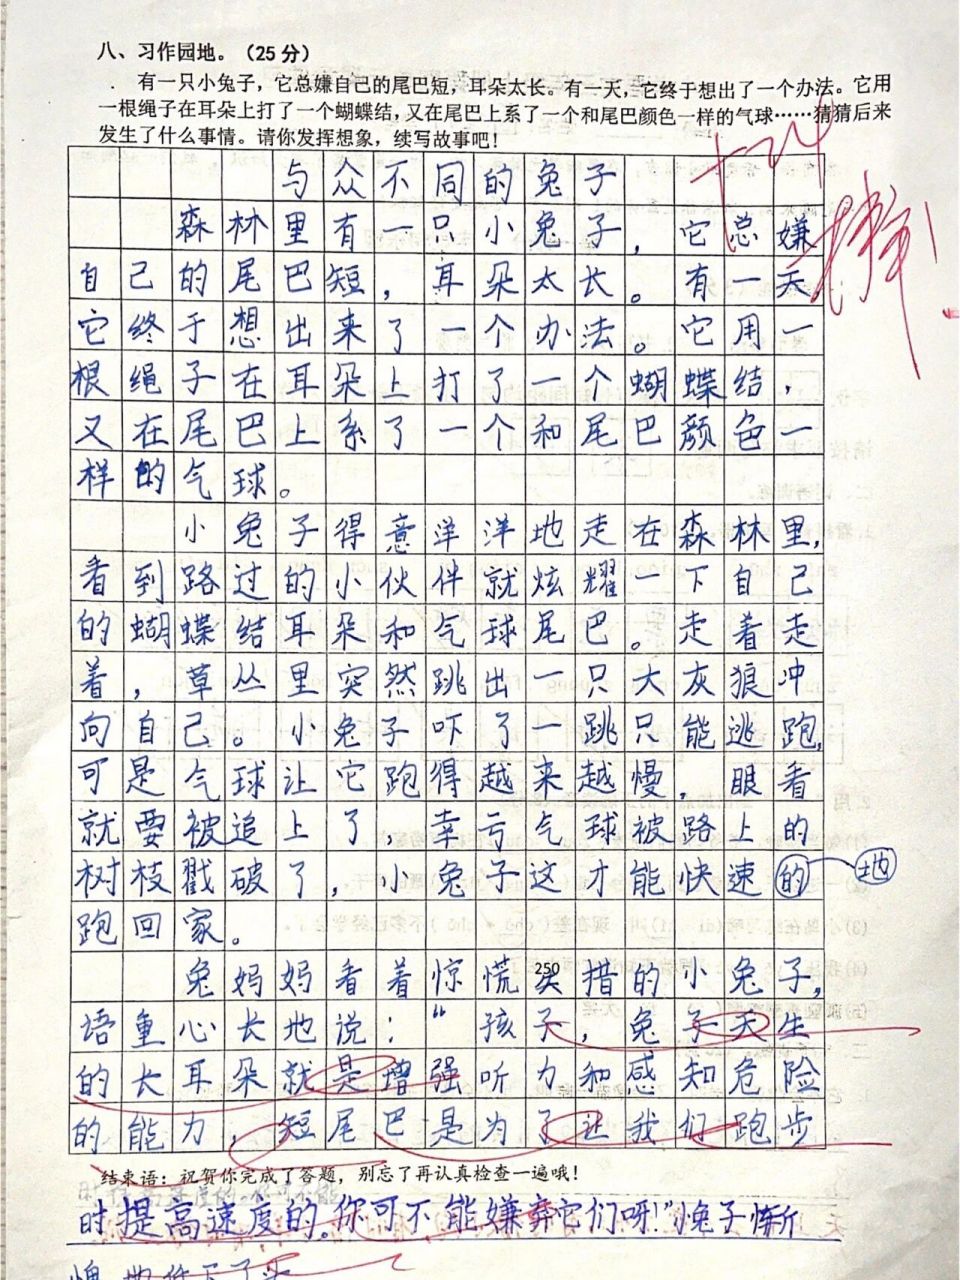 八、习作园地。(25 分)
有一只小兔子，它总嫌自己的尾巴短，耳朵太长。有一天，它终于想出了一个办法。它用
一根绳子在耳朵上打了一个蝴蝶结，又在尾巴上系了一个和尾巴颜色一样的气球……猜猜后来
发生了什么事情。请你发挥想象，续写故事吧！
与众不同的兔子
森林里有一只小兔子，它总嫌
自己的尾巴短，耳朵太长。有一天
它终于想出来了一个办法。它用一
根绳子在耳朵上打了一个蝴蝶结，
又在尾巴上系了一个和尾巴颜色一
样的气球。
小兔子得意洋洋地走在森林里，
看到路过的小伙伴就炫耀一下自己
的蝴蝶结耳朵和气球尾巴。走着走
着，草丛里突然跳出一只大灰狼冲
向自己。小兔子吓了一跳只能逃跑，
可是气球让它跑得越来越慢，眼看
就要被追上了，幸亏气球被路上的
树枝戳破了，小兔子这才能快速的 地
跑回家。
兔妈妈看着惊慌失措的小兔子，
250
语重心长地说：“孩子，兔子天生
的长耳朵就是增强听力和感知危险
的能力，短尾巴是为了让我们跑步
结束语：祝贺你完成了答题，别忘了再认真检查一遍哦！
时提高速度的。你可不能嫌弃它们呀！”小兔子惭
愧地低下了头